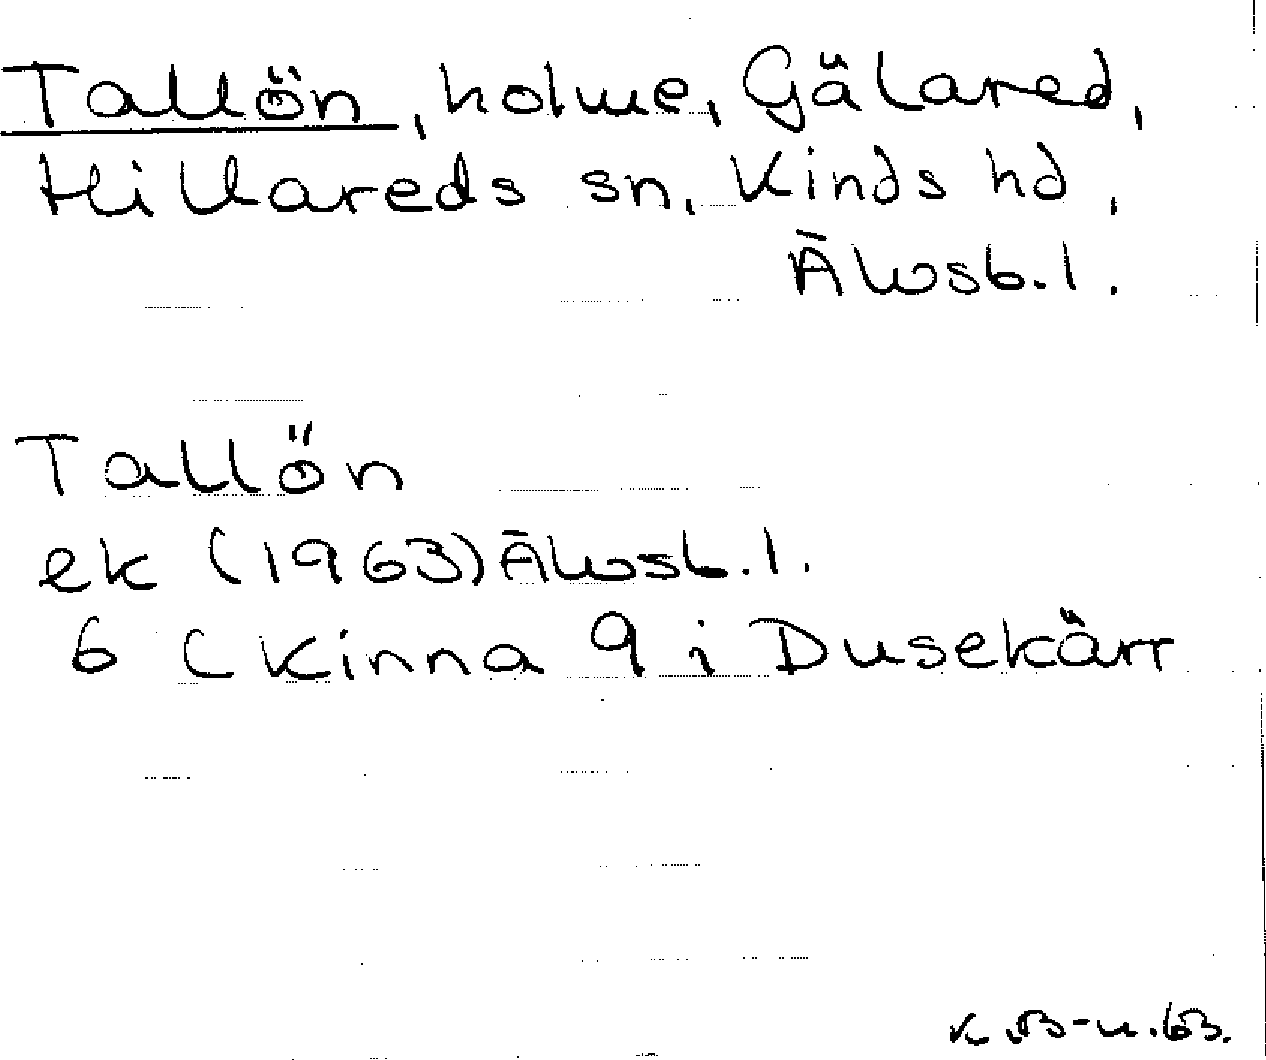 Tallön, holme, Gälared,
Hillareds sn, Kinds hd,
Älvsb.l.
Tallön
ek (1963) Älvsb.l.
6 ( Kinna 9 i Dusekärr